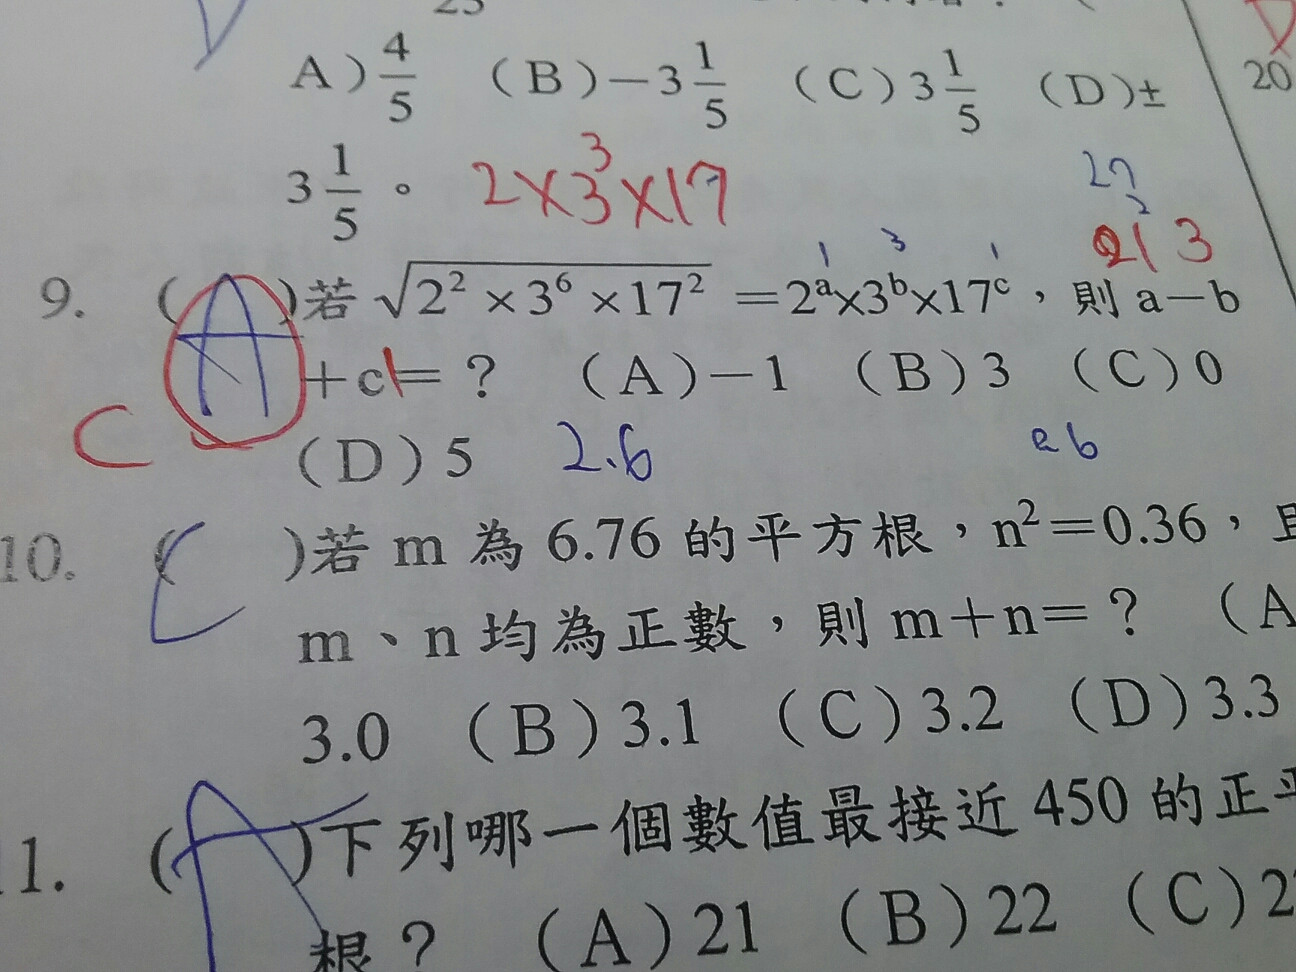 A) 4/5 (B)-3 1/5 (C)3 1/5 (D)± 20
3 1/5 。 2×3³×17 27
2 1 3
1 3 1
9. (A)若√(2²×3⁶×17²) =2ᵃ×3ᵇ×17ᶜ,則a-b
+c= ? (A)-1 (B)3 (C)0
C
(D)5 2.6
10. (C)若m為6.76的平方根,n²=0.36,且
m、n均為正數,則m+n= ? (A
3.0 (B)3.1 (C)3.2 (D)3.3
11. (A)下列哪一個數值最接近450的正平
根? (A)21 (B)22 (C)2